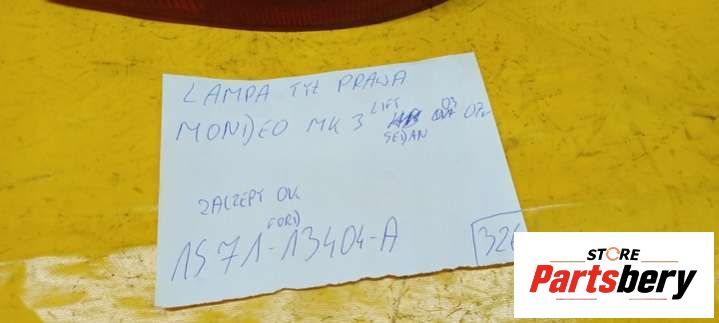 LAMPA TYŁ PRAWA
MONDEO MK 3 LIFT 03 07r
SEDAN
ZACZEPY OK
FORD
1S71-13404-A
326
STORE
Partsbery